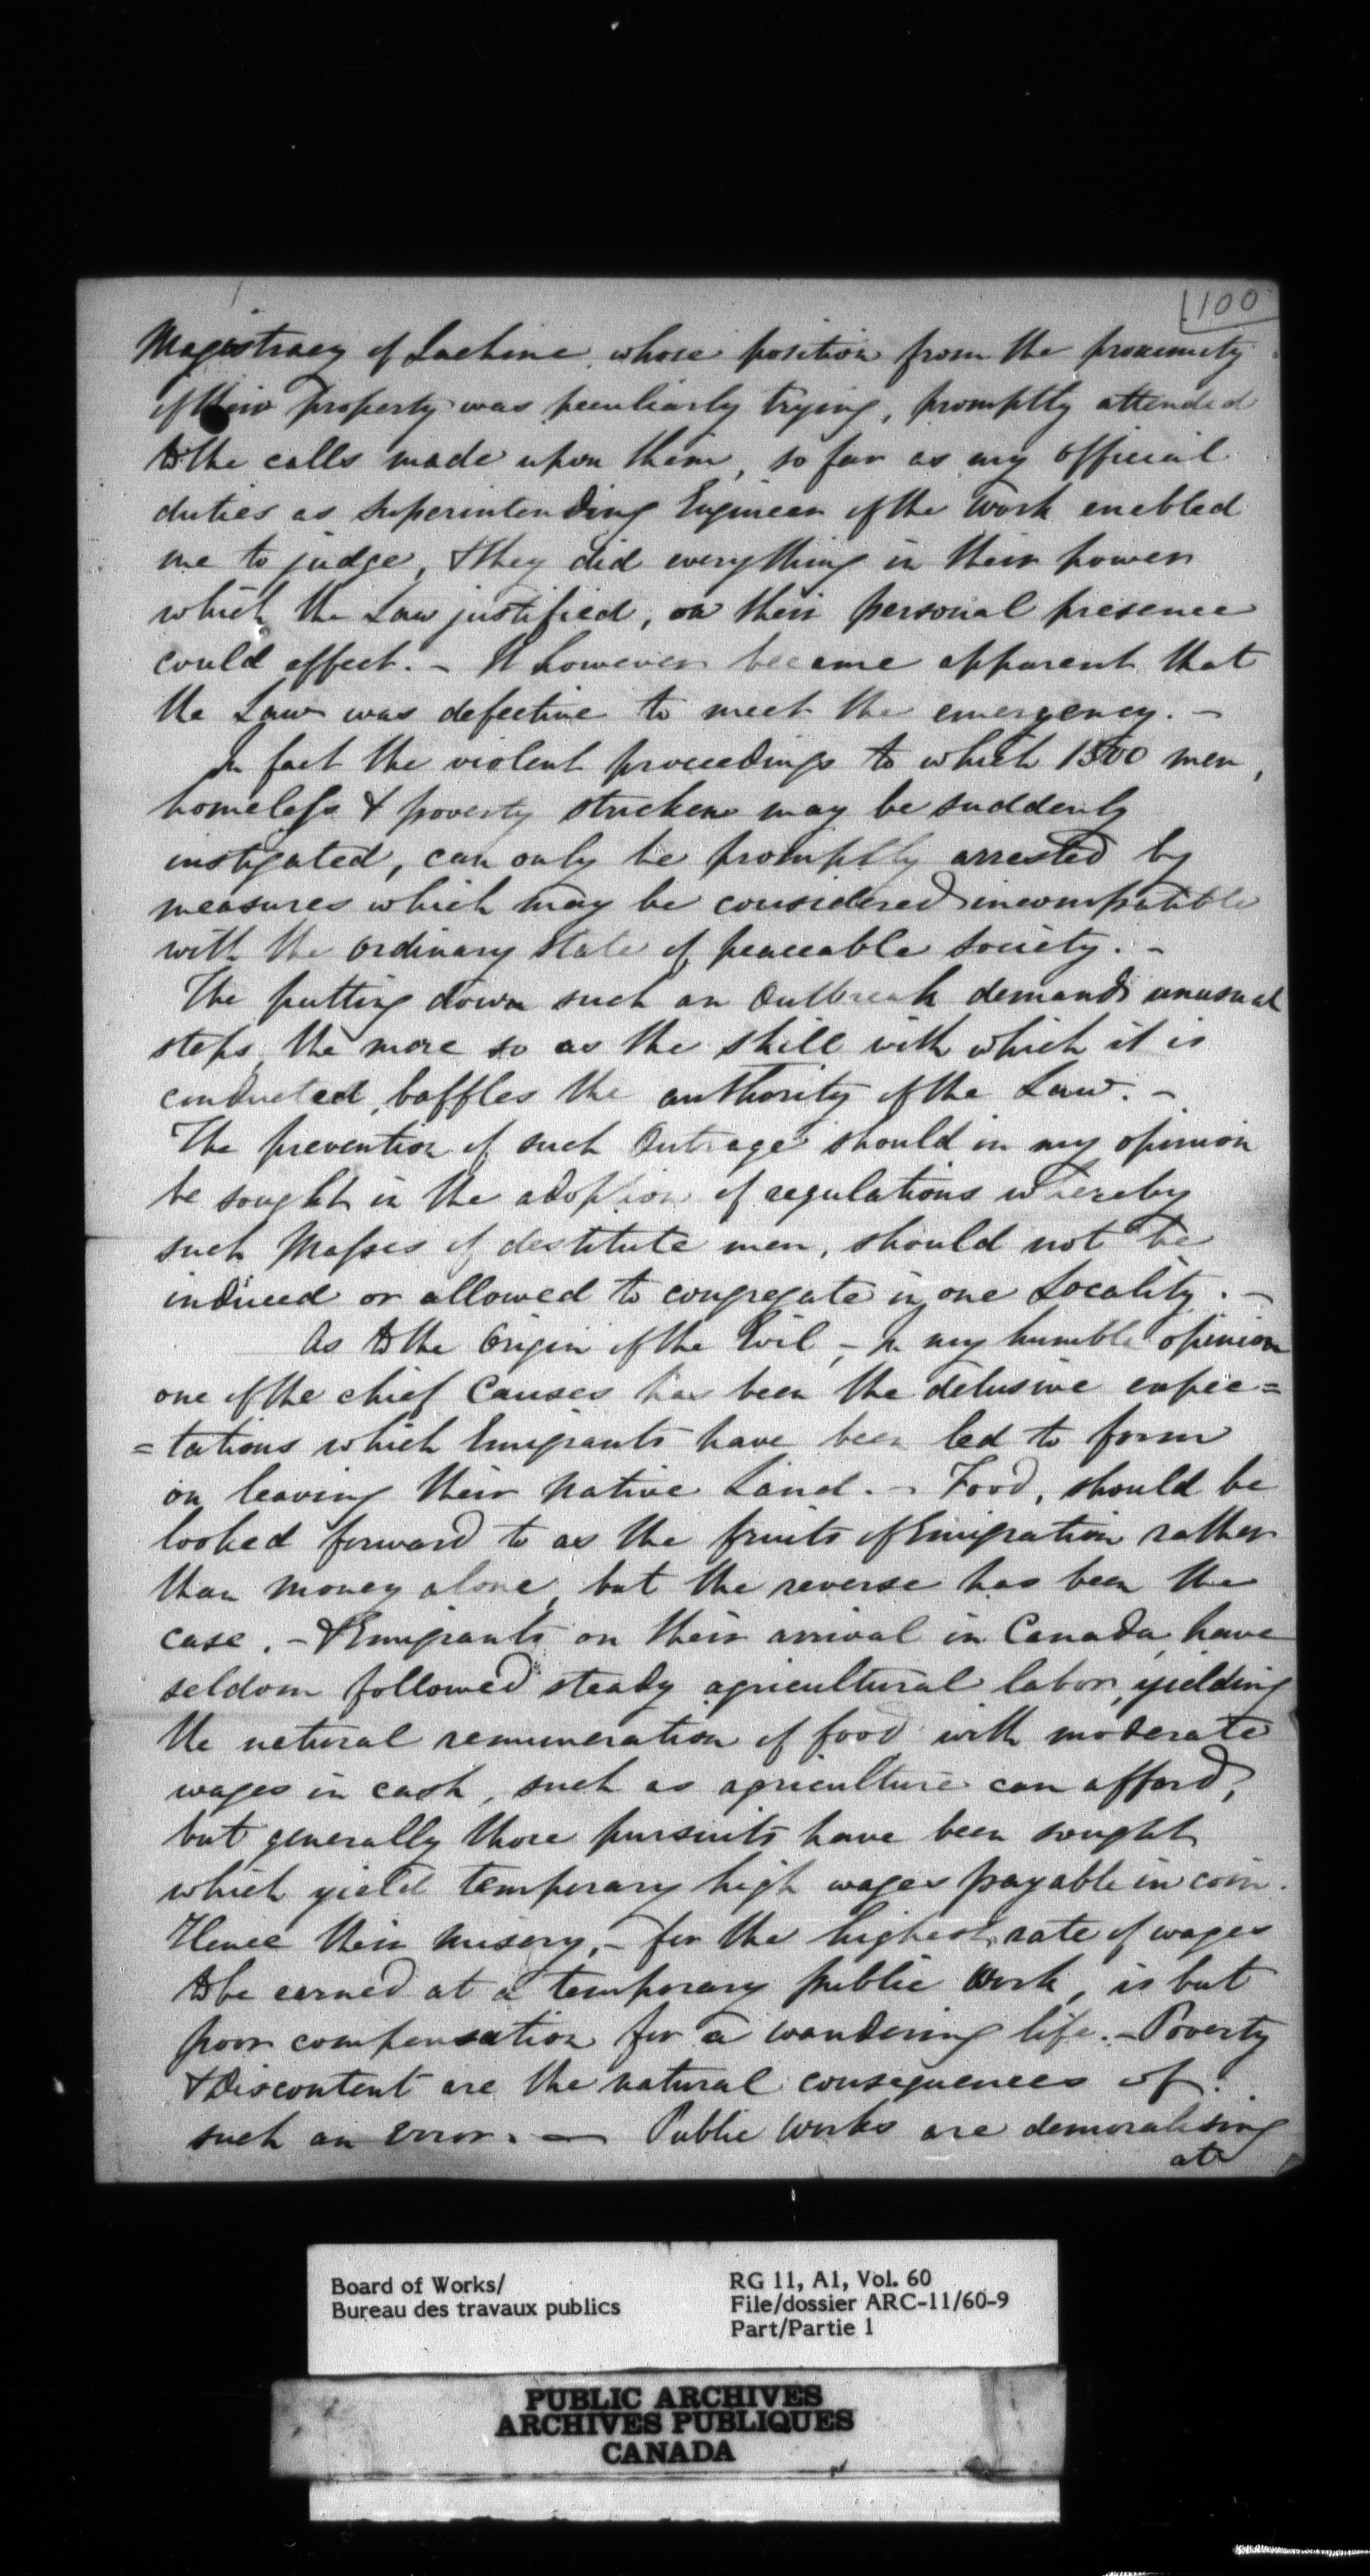 100
Magistracy of Lachine whose position from the proximity
of their property was peculiarly trying, promptly attended
to the calls made upon them, so far as my official
duties as Superintending Engineer of the Work enabled
me to judge, & they did everything in their power
which the Law justified, or their personal presence
could effect. - It however became apparent that
the Law was defective to meet the emergency. -
In fact the violent proceedings to which 1500 men,
homeless & poverty stricken may be suddenly
instigated, can only be promptly arrested by
measures which may be considered incompatible
with the ordinary state of peaceable society. -
The putting down such an Outbreak demands unusual
steps, the more so as the skill with which it is
conducted, baffles the authority of the Law. -
The prevention of such Outrage should in my opinion
be sought in the adoption of regulations whereby
such Masses of destitute men, should not be
induced or allowed to congregate in one Locality. -
As to the Origin of the Evil, - in my humble opinion
one of the chief Causes has been the delusive expec=
=tations which Emigrants have been led to form
on leaving their Native Land. - Food, should be
looked forward to as the fruits of Emigration rather
than money alone, but the reverse has been the
case. - & Emigrants on their arrival in Canada, have
seldom followed steady agricultural labor, yielding
the natural remuneration of food with moderate
wages in cash, such as agriculture can afford,
but generally those pursuits have been sought
which yield temporary high wages payable in coin.
Hence their misery, - for the highest rate of wages
to be earned at a temporary public Work, is but
poor compensation for a wandering life. - Poverty
& Discontent are the natural consequences of
such an Error. - Public Works are demoralising
at
Board of Works/
Bureau des travaux publics
RG 11, A1, Vol. 60
File/dossier ARC-11/60-9
Part/Partie 1
PUBLIC ARCHIVES
ARCHIVES PUBLIQUES
CANADA